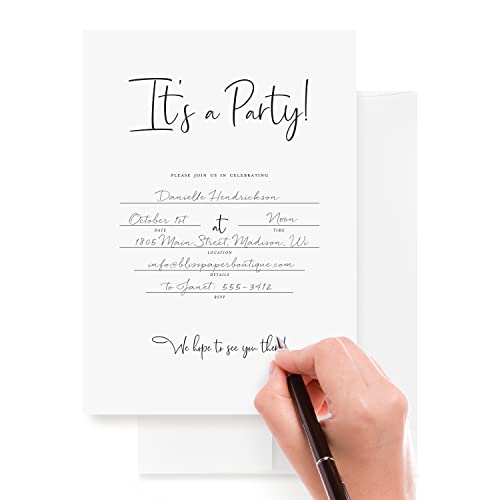 It's a Party!
PLEASE JOIN US IN CELEBRATING
Danielle Hendrickson
October 1st at Noon
DATE TIME
1805 Main Street, Madison, Wi
LOCATION
info@blisspaperboutique.com
DETAILS
to Janet 555-3412
RSVP
We hope to see you there!